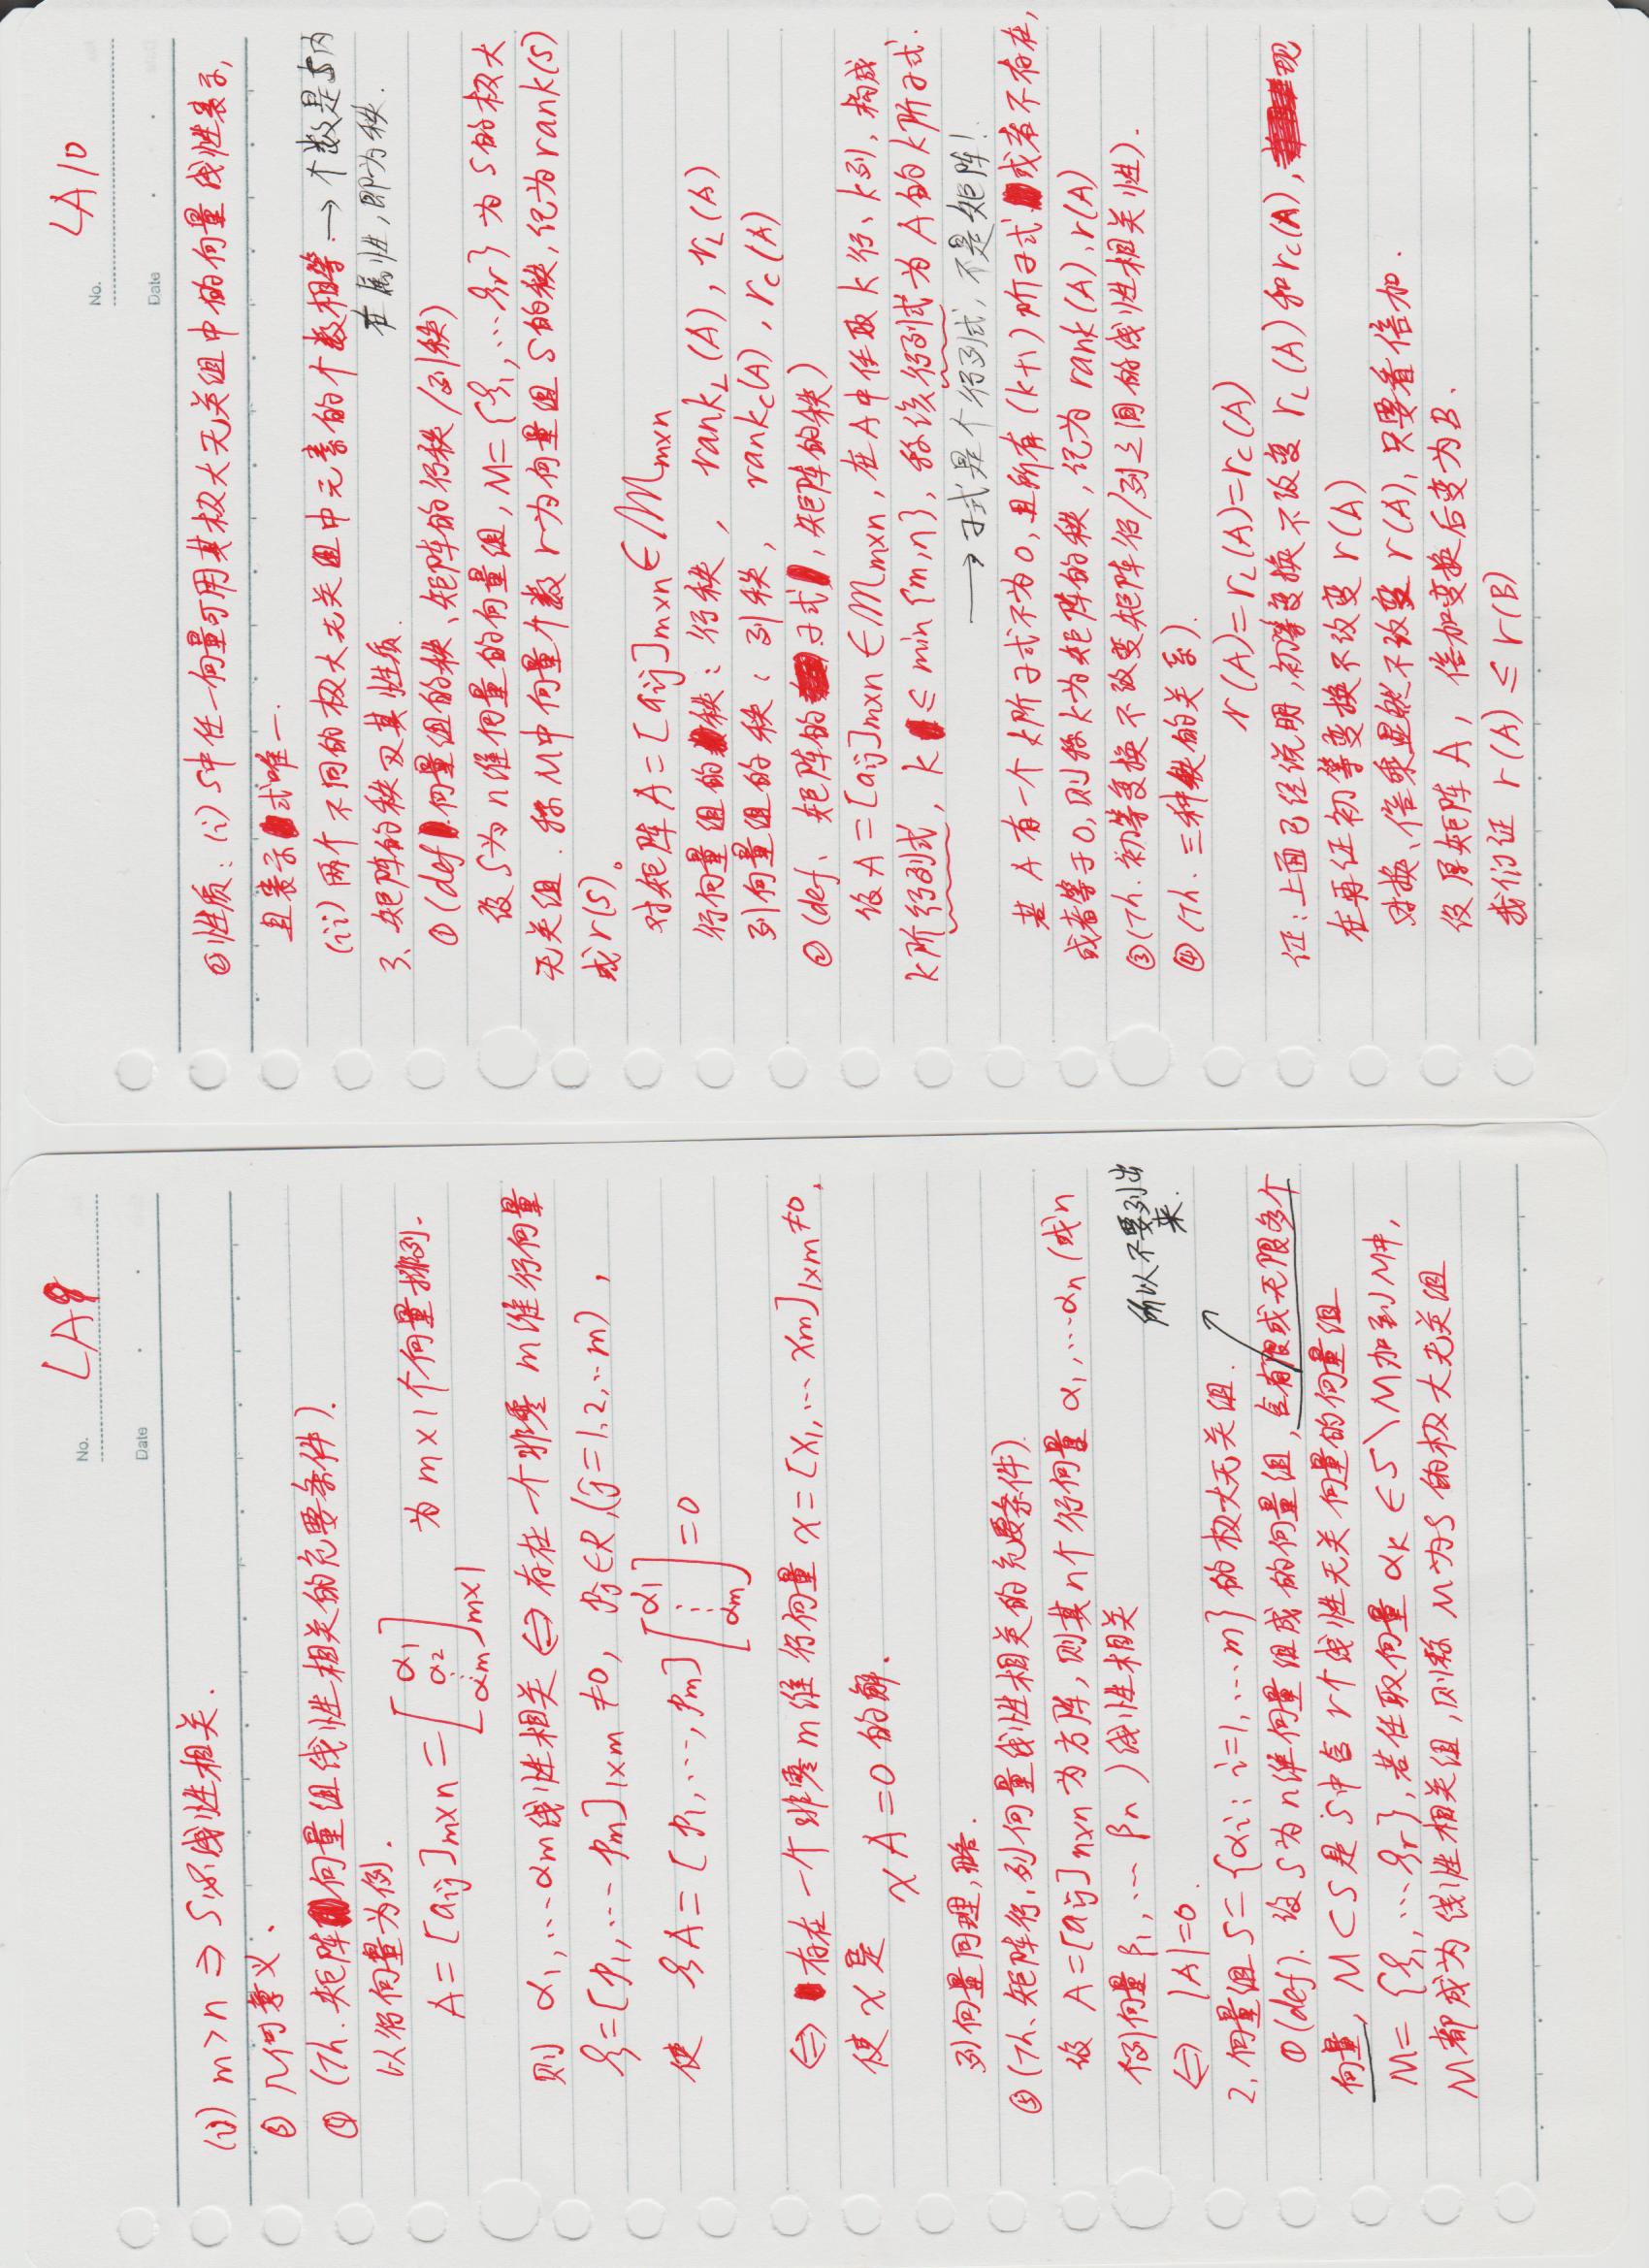 No. LA9
Date
(ii) m>n ⇒ S必线性相关.
③ 几何意义.
④ (Th. 矩阵向量组线性相关的充要条件).
以行向量为例.
A=[aij]m×n=[α1 α2 ⋮ αm]m×1 为m×1个向量排列.
则 α1,…αm线性相关 ⇔ 存在一个非零m维行向量
ξ=[p1,…pm]1×m≠0, pj∈R,(j=1,2,…m),
使 ξA=[p1,…,pm][α1 ⋮ αm]=0
⇔ 存在一个非零m维行向量 x=[x1,…xm]1×m≠0,
使x是 xA=0的解.
列向量同理,略.
⑤(Th、矩阵行,列向量线性相关的充要条件).
设 A=[aij]n×n为方阵,则其n个行向量 α1,…αn (或n
个列向量β1,…βn)线性相关
⇔ |A|=0.
所以不要列出
来.
2,向量组 S={αi: i=1,…m}的极大无关组.
①(def). 设S为n维向量组成的向量组,含有限或无限多个
向量,M⊂S是S中含r个线性无关向量的向量组
M={ξ1,…ξr},若任取向量αk∈S\M加到M中,
M都成为线性相关组,则称M为S的极大无关组
No. LA10
Date
②性质:(i)S中任一向量可用其极大无关组中的向量线性表示,
且表示式唯一.
(ii)两个不同的极大无关组中元素的个数相等.→个数是S内
在属性,即为秩.
3、矩阵的秩及其性质.
①(def.向量组的秩、矩阵的行秩/列秩)
设S为n维向量的向量组,M={ξ1,…ξr}为S的极大
无关组.称M中向量个数r为向量组S的秩,记为rank(S)
或r(S)。
对矩阵A=[aij]m×n∈Mm×n
行向量组的秩:行秩, rankL(A), rL(A)
列向量组的秩:列秩, rankC(A), rC(A)
②(def、矩阵的子式,矩阵的秩)
设A=[aij]m×n∈Mm×n,在A中任取k行、k列,构成
k阶行列式,k≤min{m,n},称该行列式为A的k阶子式.
→子式是个行列式,不是矩阵!
若A有一个k阶子式不为0,且所有(k+1)阶子式或者不存在,
或者等于0,则称k为矩阵的秩,记为rank(A),r(A)
③(Th.初等变换不改变矩阵行/列之间的线性相关性).
④(Th.三种秩的关系).
r(A)=rL(A)=rC(A)
证:上面已经说明,初等变换不改变rL(A)和rC(A),现
在再证初等变换不改变r(A)
对换、倍乘显然不改变r(A),只要看倍加.
设原矩阵A,倍加变换后变为B.
我们证 r(A)≤r(B)